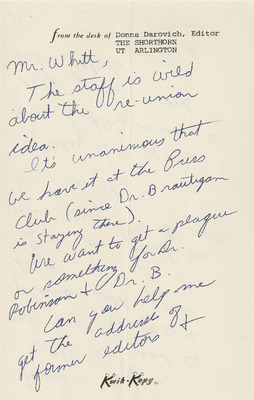 from the desk of Donna Darovich, Editor
THE SHORTHORN
UT ARLINGTON
Mr. Whitt,
The staff is wild
about the re-union
idea.
It's unanimous that
we have it at the Press
Club (since Dr. Brautigam
is staying there).
We want to get a plaque
or something for Dr.
Robinson & Dr. B.
Can you help me
get the addresses of
former editors &
Kwik-Kopy